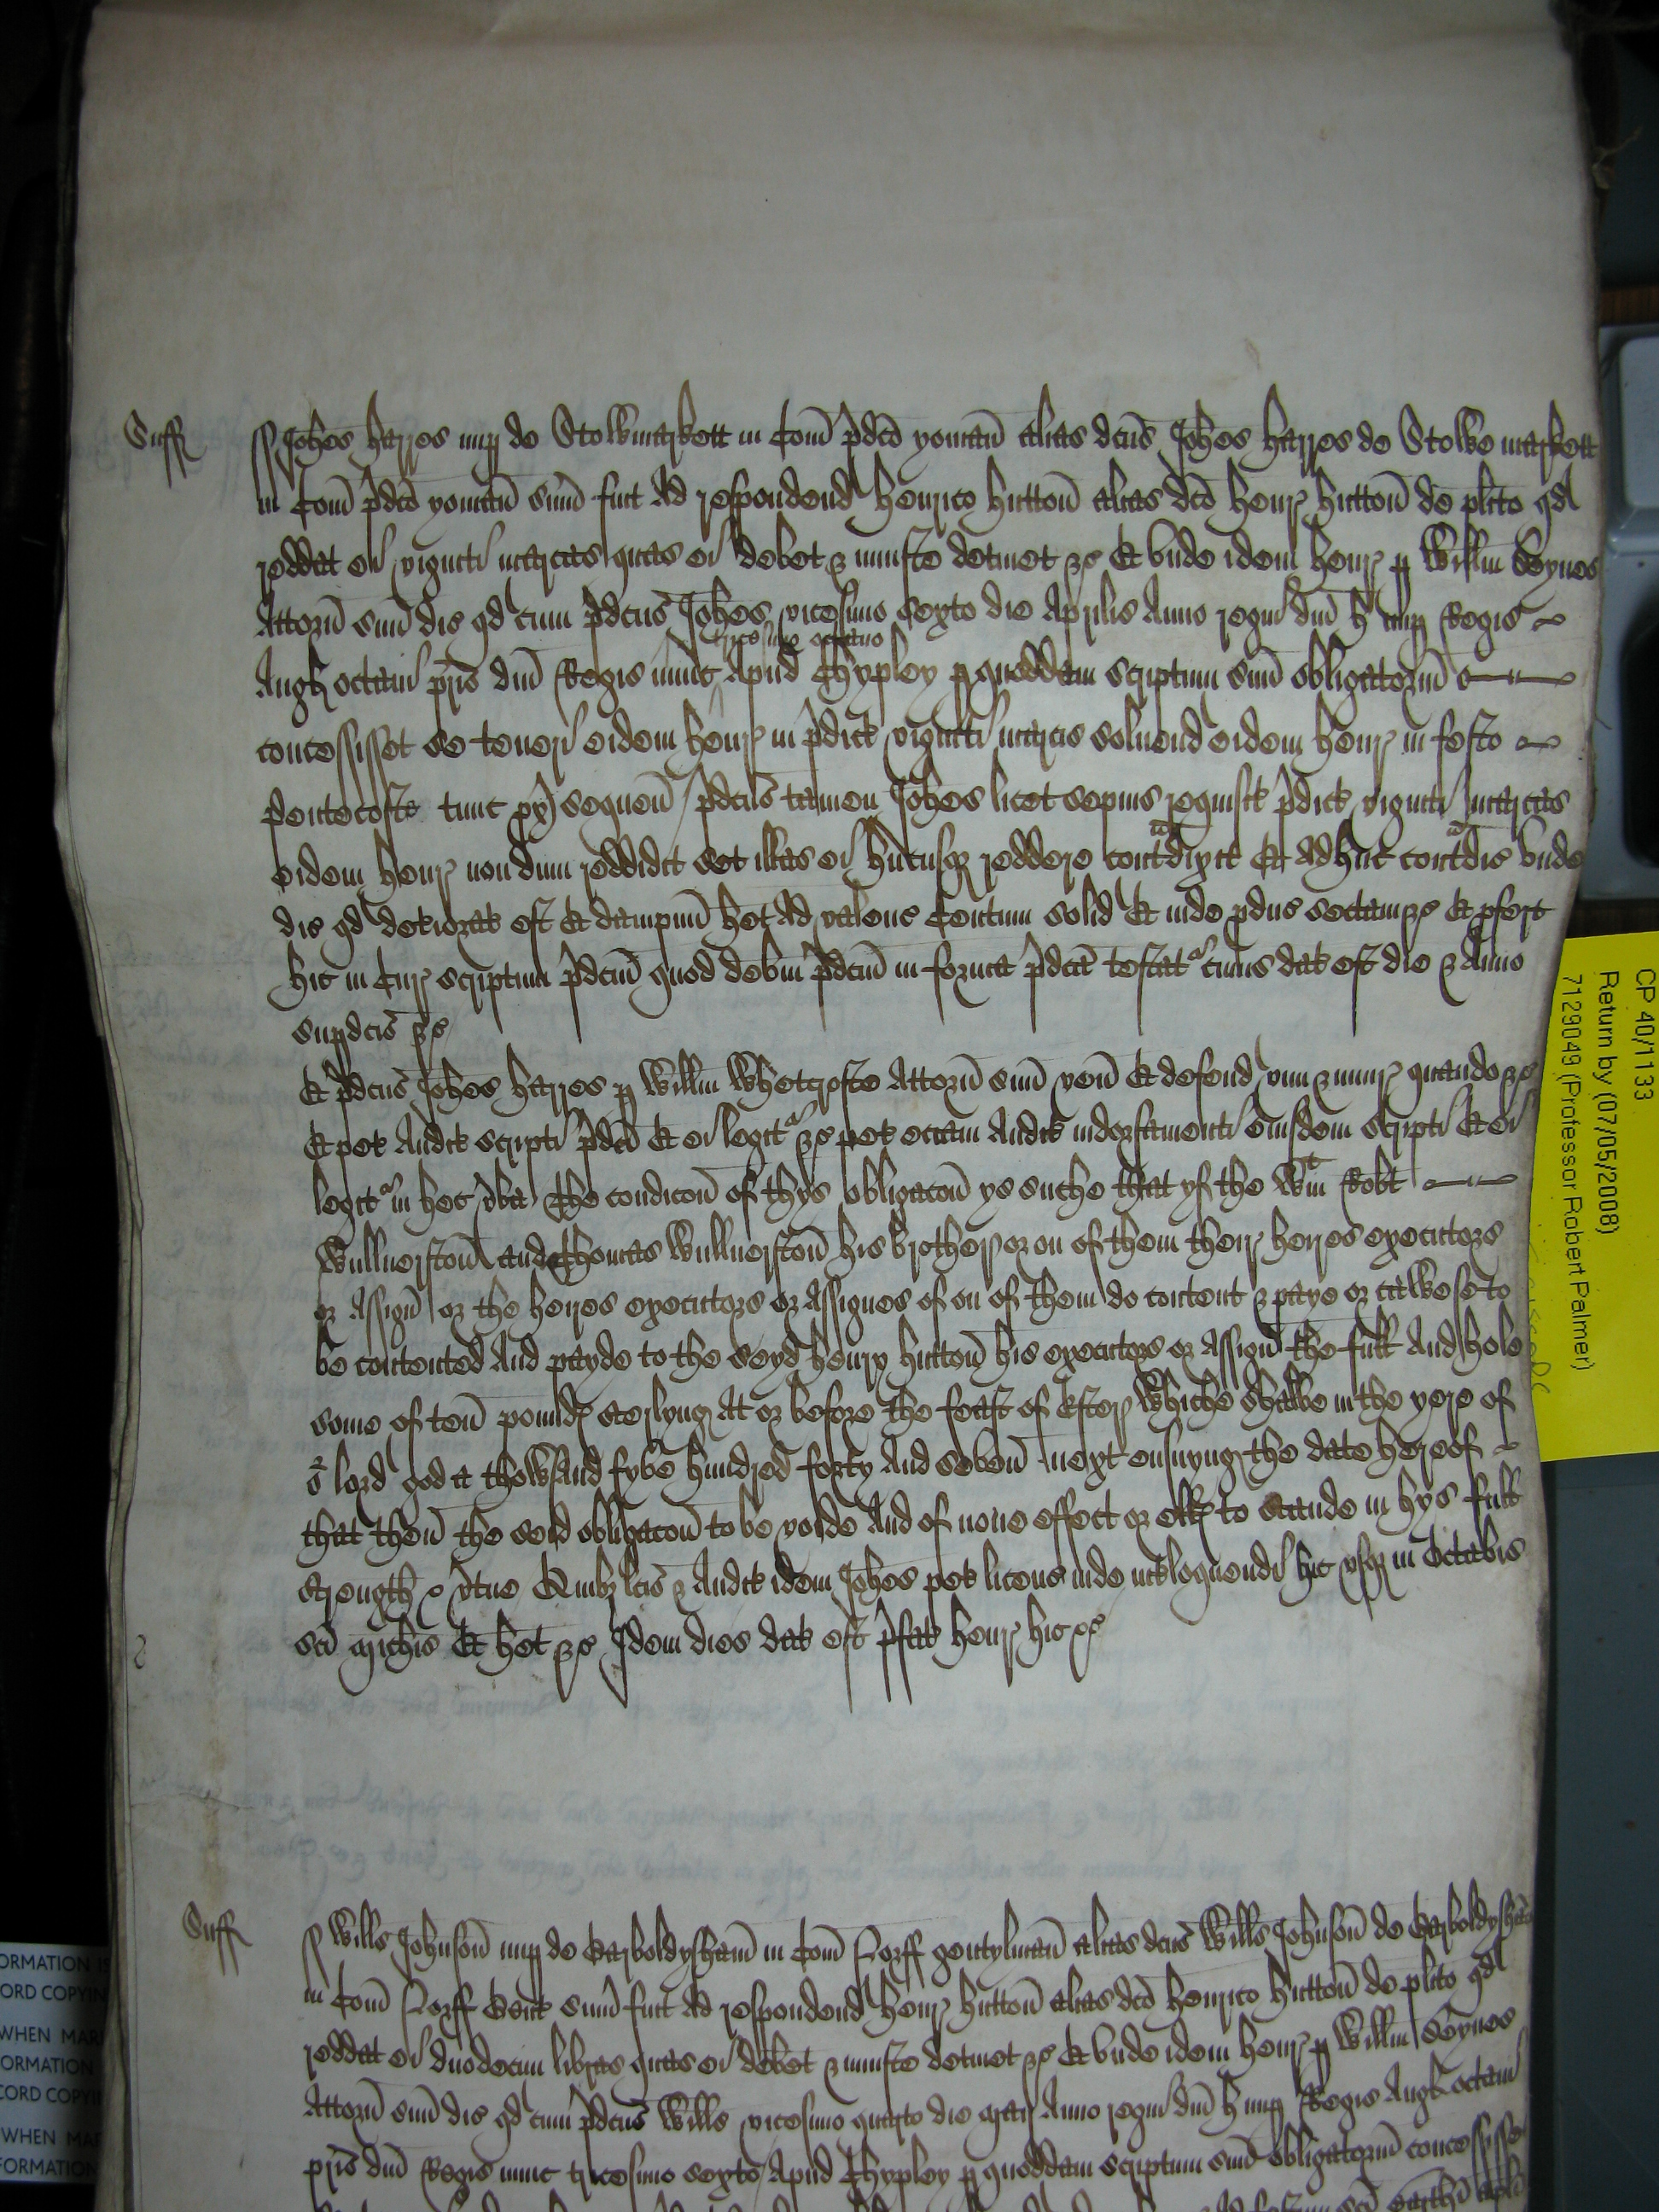 Suff
Johes Harres nup de Stowmarkett in Com p̄dcō yoman alias dcūs Johes Harres de Stowe markett
in Com p̄dcō yoman sum̄ fuit ad respondend Henrico Hutton alias dcō Henr Hutton de plīto qd
reddat ei viginti marcas quas ei debet & iniuste detinet &c Et unde idem Henr p Willm Seynes
Attorn̄ suū dic qd cum p̄dcūs Johes vicesimo sexto die Aprilis Anno regni dn̄i H nup Regis
tricesimo octavo
Angl octavi pr̄is dn̄i Regis nunc Apud Chypley p quoddam scriptum suū obligatoriū
concessisset se teneri eidem Henr in p̄dict viginti marcis solvend eidem Henr in festo
Pentecoste tunc px̄ sequen̄ p̄dcūs tamen Johes licet sepius requisit p̄dict viginti marcas
eidem Henr nondum reddidit set illas ei hucusq reddere contradixit Et adhuc contradic unde
dic qd deteriorat est Et dampnū het ad valenc Centum solid Et inde pduc sectam &c Et pfert
hic in Cur scriptum p̄dcm̄ quod debm̄ p̄dcm̄ in forma p̄dcā testatr cuius dat est die & Anno
supdcīs &c
Et p̄dcūs Johes Harres p Willm Whetcrofte Attorn̄ suū ven̄ Et defend vim & iniur quando &c
Et pet Audit scripti p̄dcī Et ei legitr &c pet eciam Audit indorsamenti eiusdem scripti Et ei
legitr in hec vba The condicon̄ of thys obligacon̄ ys suche that yf the wt in Robt
Wulluerston̄ and Thomas Wulluerston̄ his brother or on of them their heyres executors
or Assign̄ or the heyres executors or Assignes of on of them do content & paye or cawse to
be contented And payde to the seyd Henry Hutton̄ his executors or Assign̄ the full And hole
some of ten̄ pound sterlyng At or before the feast of Ester whiche shalbe in the yere of
or lord god a thowsand fyve hundred forty And seven̄ next ensuyng the date hereof
that then̄ the seid obligacon̄ to be voide And of none effect or ell to stande in hys full
strength & vtue Quibz lcīs & Audit idem Johes pet licenc inde intloquendi hic usq in Octabis
scī Michis Et het &c Idem dies dat est p̄fat Henr hic &c
Suff
Wills Johnson̄ nup de Garboldysham in Com Norff gentylman alias dcūs Wills Johnson̄ de Garboldysham
in Com Norff Gent sum̄ fuit ad respondend Henr Hutton̄ alias dcō Henrico Hutton̄ de plīto qd
reddat ei duodecim libras quas ei debet & iniuste detinet &c Et unde idem Henr p Willm Seynes
Attorn̄ suū dic qd cum p̄dcūs Wills vicesimo quarto die Maii Anno regni dn̄i H nup Regis Angl octavi
pr̄is dn̄i Regis nunc tricesimo sexto Apud Chypley p quoddam scriptum suū obligatoriū concessisset
CP 40/1133
Return by (07/05/2008)
7129049 (Professor Robert Palmer)
ORMATION IS
ORD COPYIN
WHEN MAR
ORMATION
CORD COPYI
WHEN MAR
FORMATION